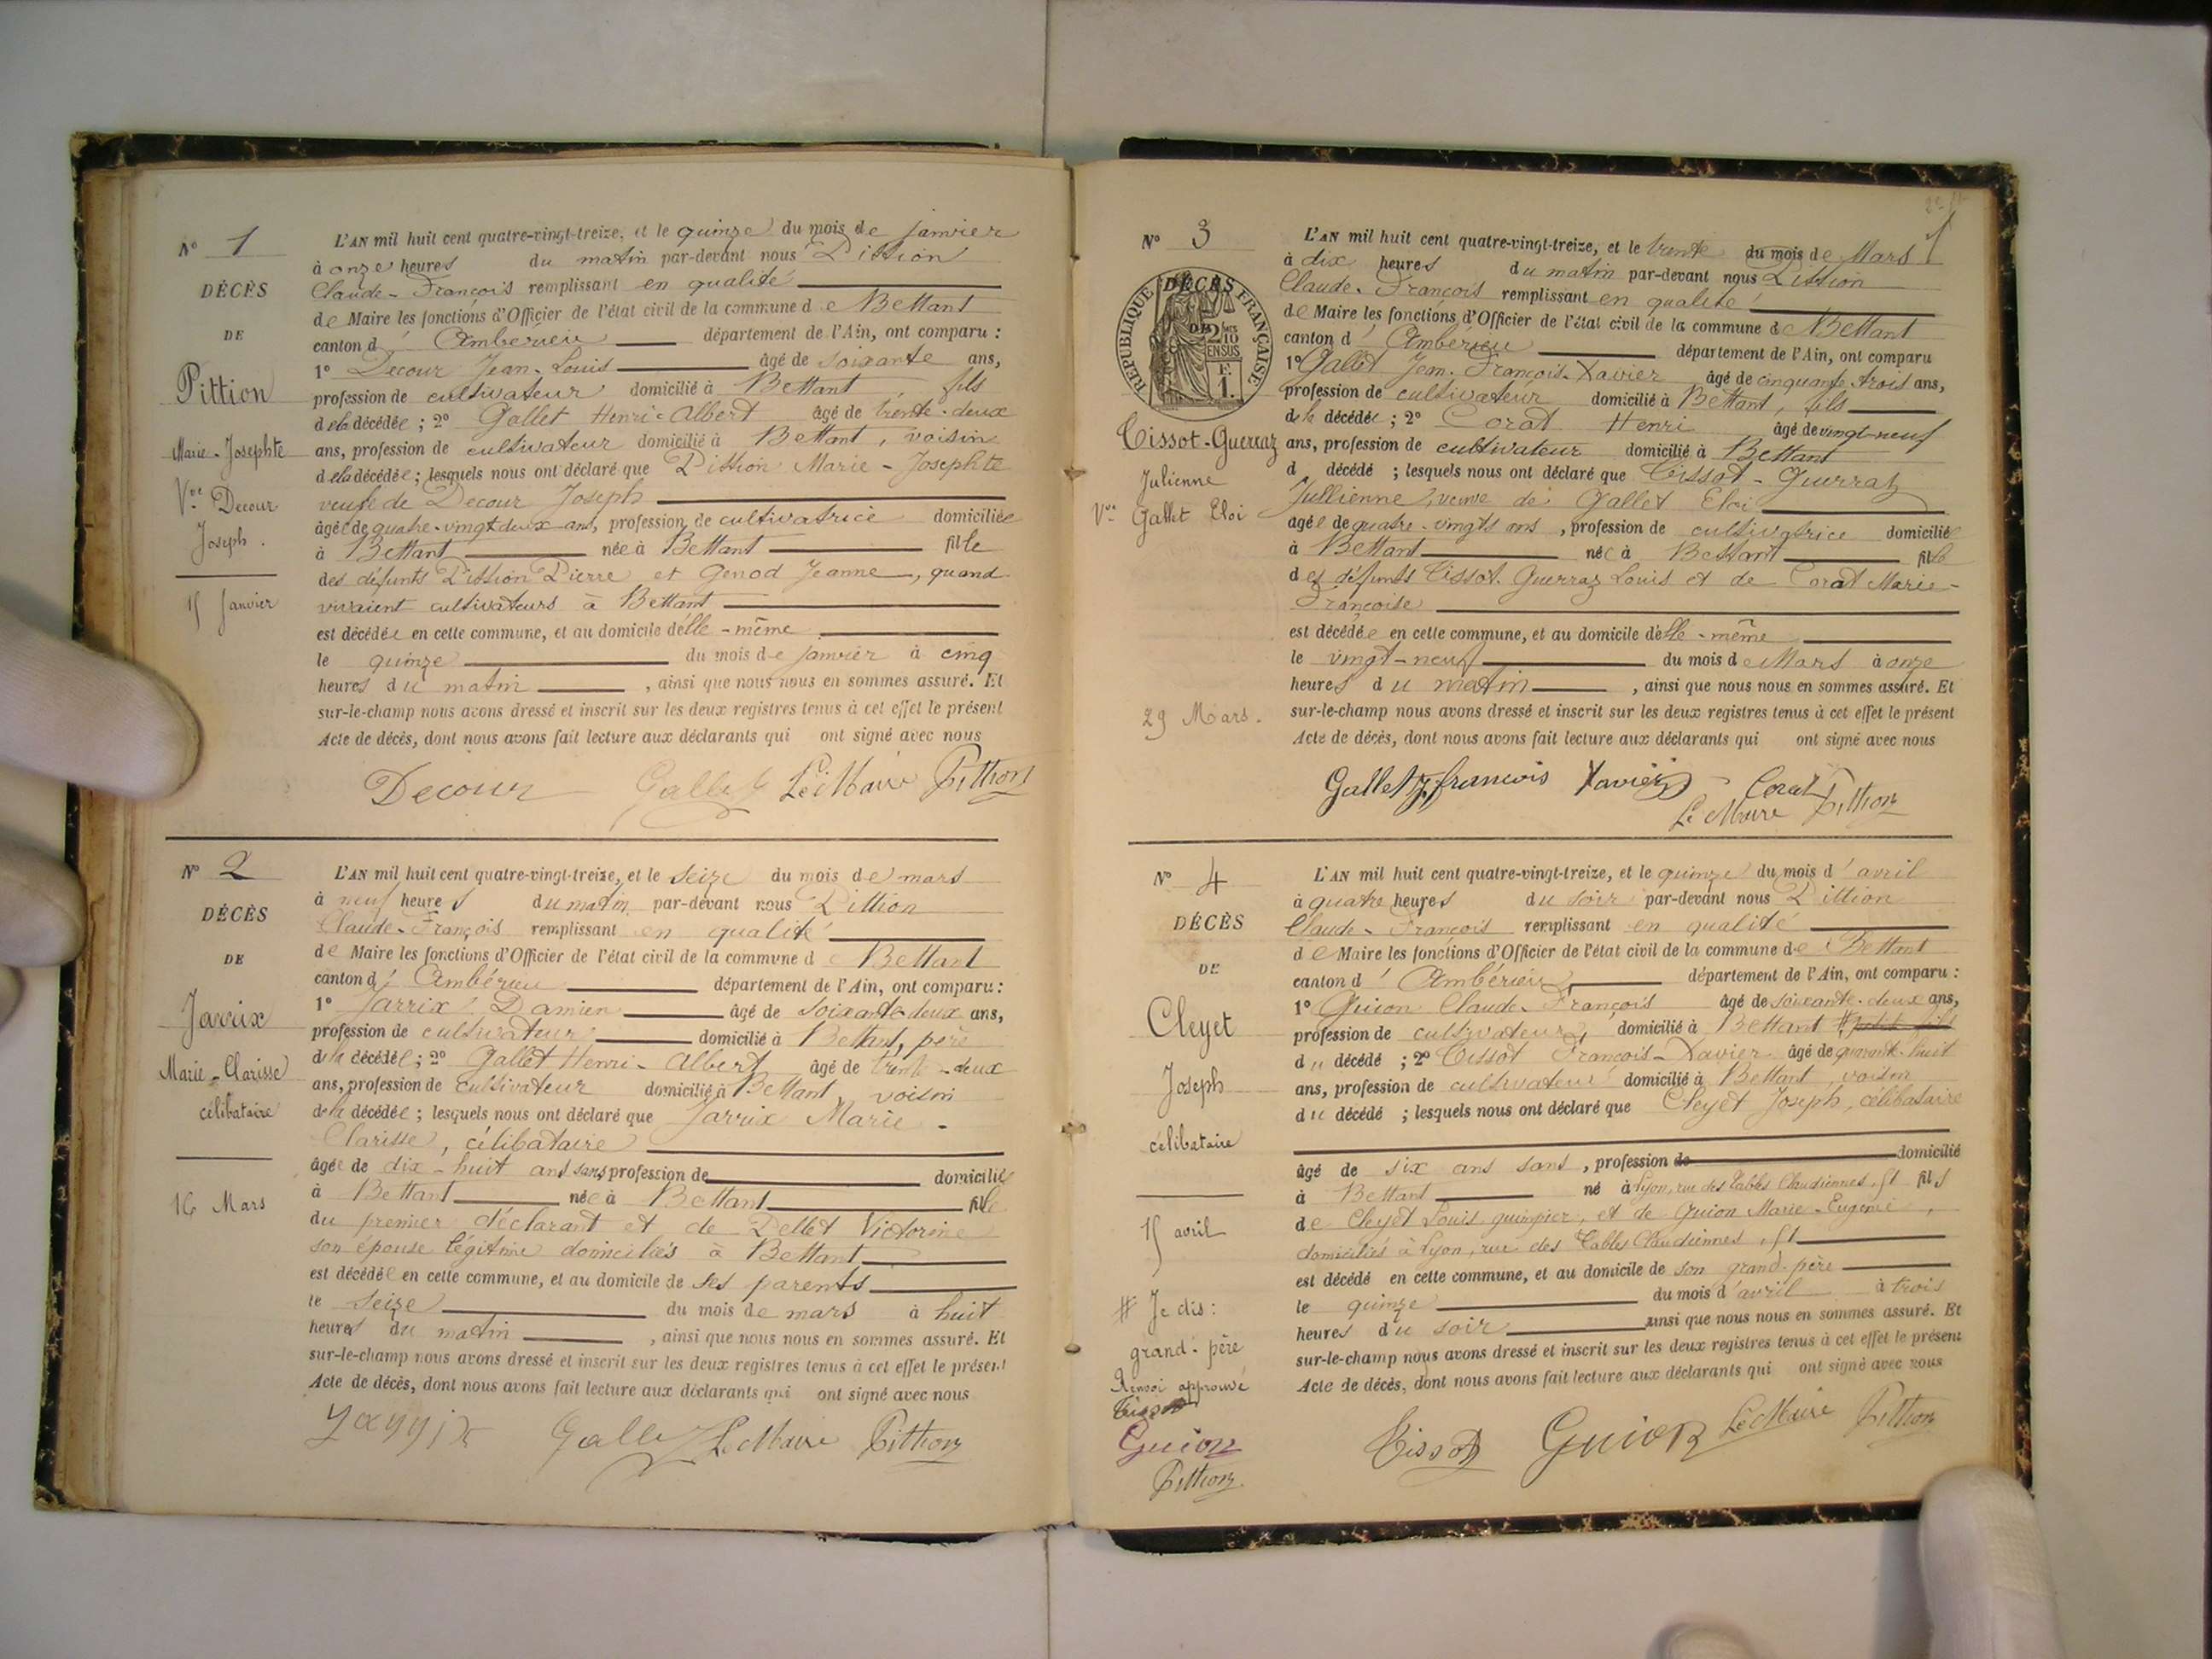 N° 1
DÉCÈS
DE
Pittion
Marie-Josephte
Vve Decour
Joseph.
15 Janvier
L'AN mil huit cent quatre-vingt-treize, et le quinze du mois de janvier
à onze heures du matin par-devant nous Pittion
Claude-François remplissant en qualité
de Maire les fonctions d'Officier de l'état civil de la commune de Bettant
canton d'Ambérieu département de l'Ain, ont comparu :
1° Decour Jean-Louis âgé de soixante ans,
profession de cultivateur domicilié à Bettant, fils
de la décédée ; 2° Gallet Henri-Albert âgé de trente-deux
ans, profession de cultivateur domicilié à Bettant, voisin
de la décédée ; lesquels nous ont déclaré que Pittion Marie-Josephte
veuve de Decour Joseph
âgée de quatre-vingt deux ans, profession de cultivatrice domiciliée
à Bettant née à Bettant fille
des défunts Pittion Pierre et Genod Jeanne, quand
vivaient cultivateurs à Bettant
est décédée en cette commune, et au domicile d'elle-même
le quinze du mois de janvier à cinq
heures du matin, ainsi que nous nous en sommes assuré. Et
sur-le-champ nous avons dressé et inscrit sur les deux registres tenus à cet effet le présent
Acte de décès, dont nous avons fait lecture aux déclarants qui ont signé avec nous
Decour Gallet Le Maire Pittion
N° 2
DÉCÈS
DE
Jarrix
Marie-Clarisse
célibataire
16 Mars
L'AN mil huit cent quatre-vingt-treize, et le seize du mois de mars
à neuf heures du matin par-devant nous Pittion
Claude-François remplissant en qualité
de Maire les fonctions d'Officier de l'état civil de la commune de Bettant
canton d'Ambérieu département de l'Ain, ont comparu :
1° Jarrix Damien âgé de soixante-deux ans,
profession de cultivateur domicilié à Bettant, père
de la décédée ; 2° Gallet Henri-Albert âgé de trente-deux
ans, profession de cultivateur domicilié à Bettant, voisin
de la décédée ; lesquels nous ont déclaré que Jarrix Marie-
Clarisse, célibataire
âgée de dix-huit ans sans profession de domiciliée
à Bettant née à Bettant fille
du premier déclarant et de Dellet Victorine
son épouse légitime domiciliés à Bettant
est décédée en cette commune, et au domicile de ses parents
le seize du mois de mars à huit
heures du matin, ainsi que nous nous en sommes assuré. Et
sur-le-champ nous avons dressé et inscrit sur les deux registres tenus à cet effet le présent
Acte de décès, dont nous avons fait lecture aux déclarants qui ont signé avec nous
Jarrix Gallet Le Maire Pittion
N° 3
RÉPUBLIQUE FRANÇAISE
DÉCÈS
DE
2/10
EN SUS
F.
1.
Tissot-Guerraz
Julienne
Vve Gallet Eloi
29 Mars.
L'AN mil huit cent quatre-vingt-treize, et le trente du mois de Mars
à dix heures du matin par-devant nous Pittion
Claude-François remplissant en qualité
de Maire les fonctions d'Officier de l'état civil de la commune de Bettant
canton d'Ambérieu département de l'Ain, ont comparu
1° Gallet Jean-François-Xavier âgé de cinquante trois ans,
profession de cultivateur domicilié à Bettant, fils
de la décédée ; 2° Corat Henri âgé de vingt-neuf
ans, profession de cultivateur domicilié à Bettant
d décédé ; lesquels nous ont déclaré que Tissot-Guerraz
Jullienne, veuve de Gallet Eloi
âgée de quatre-vingts ans, profession de cultivatrice domiciliée
à Bettant née à Bettant fille
des défunts Tissot-Guerraz Louis et de Corat Marie-
Françoise
est décédée en cette commune, et au domicile d'elle-même
le vingt-neuf du mois de Mars à onze
heures du matin, ainsi que nous nous en sommes assuré. Et
sur-le-champ nous avons dressé et inscrit sur les deux registres tenus à cet effet le présent
Acte de décès, dont nous avons fait lecture aux déclarants qui ont signé avec nous
Gallet J. francois Xavier Corat
Le Maire Pittion
N° 4
DÉCÈS
DE
Cleyet
Joseph
célibataire
15 avril
# Je dis :
grand-père
Renvoi approuvé
Tissot
Guion
Pittion
L'AN mil huit cent quatre-vingt-treize, et le quinze du mois d'avril
à quatre heures du soir par-devant nous Pittion
Claude-François remplissant en qualité
de Maire les fonctions d'Officier de l'état civil de la commune de Bettant
canton d'Ambérieu département de l'Ain, ont comparu :
1° Guion Claude-François âgé de soixante-deux ans,
profession de cultivateur, domicilié à Bettant # petit fils
du décédé ; 2° Tissot François-Xavier âgé de quarante-huit
ans, profession de cultivateur domicilié à Bettant, voisin
du décédé ; lesquels nous ont déclaré que Cleyet Joseph, célibataire
âgé de six ans sans, profession de domicilié
à Bettant né à Lyon, rue des Tables Claudiennes, 51 fils
de Cleyet Louis, guimpier, et de Guion Marie-Eugénie,
domiciliés à Lyon, rue des Tables Claudiennes, 51
est décédé en cette commune, et au domicile de son grand-père
le quinze du mois d'avril à trois
heures du soir ainsi que nous nous en sommes assuré. Et
sur-le-champ nous avons dressé et inscrit sur les deux registres tenus à cet effet le présent
Acte de décès, dont nous avons fait lecture aux déclarants qui ont signé avec nous
Tissot Guion Le Maire Pittion